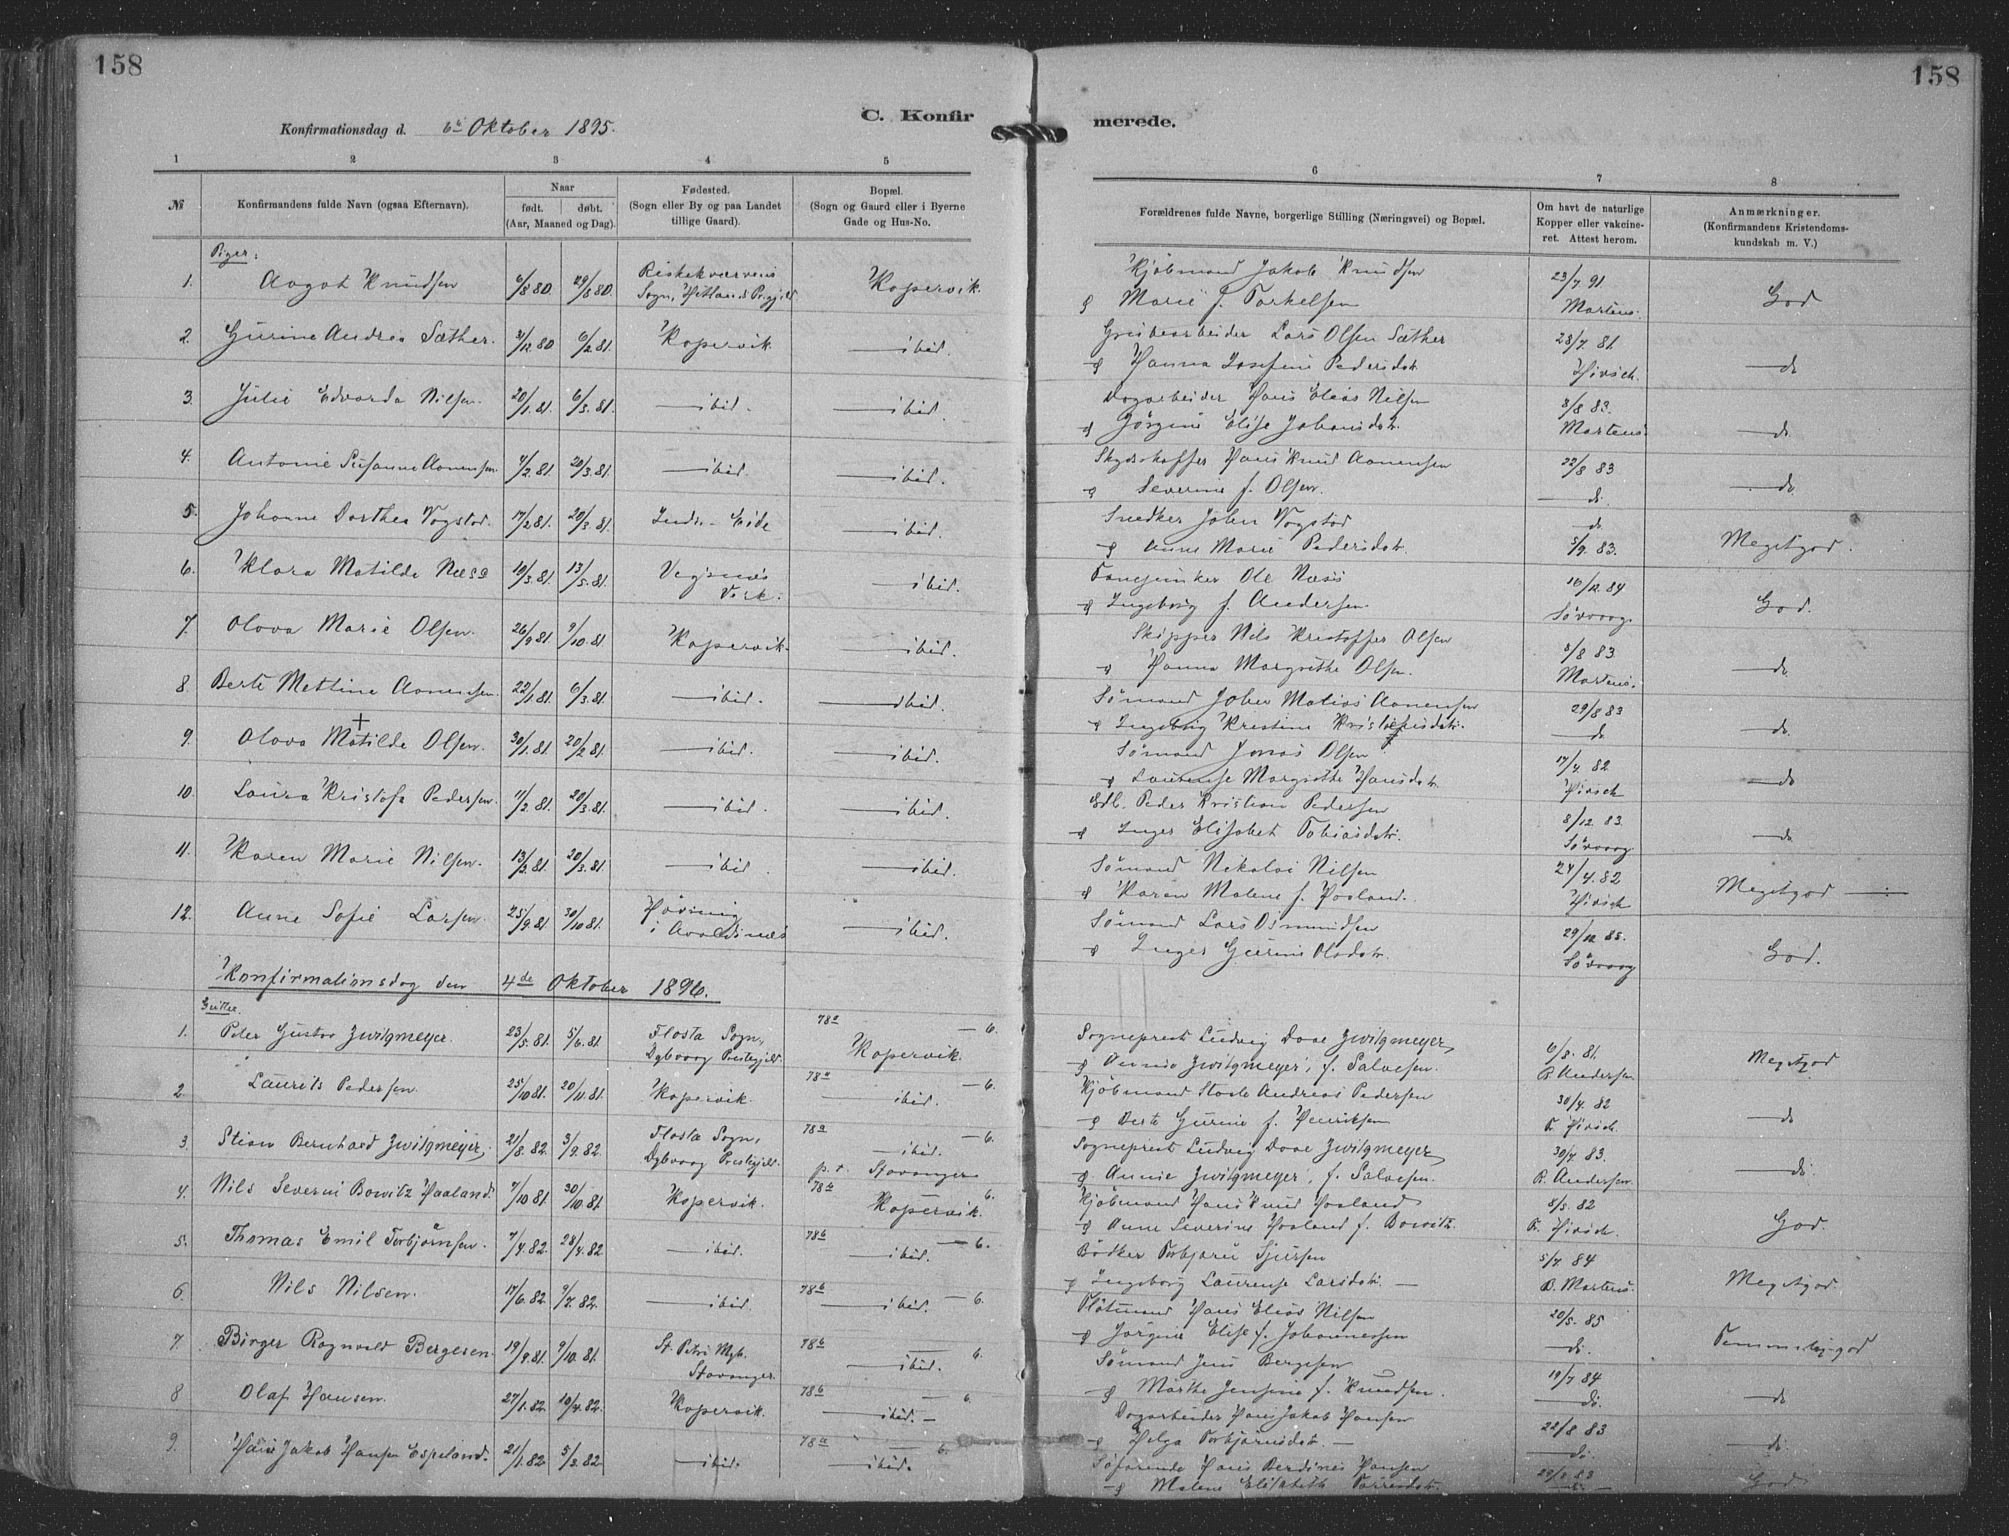 158
158
C. Konfir
merede.
Konfirmationsdag d. 6te Oktober 1895.
1 2 3 4 5 6 7 8
№
Konfirmandens fulde Navn (ogsaa Efternavn).
Naar
født. døbt.
(Aar, Maaned og Dag).
Fødested.
(Sogn eller By og paa Landet
tillige Gaard).
Bopæl.
(Sogn og Gaard eller i Byerne
Gade og Hus-No.
Forældrenes fulde Navne, borgerlige Stilling (Næringsvei) og Bopæl.
Om havt de naturlige
Kopper eller vakcine-
ret. Attest herom.
Anmærkninger.
(Konfirmandens Kristendoms-
kundskab m. V.)
Piger:
1. Aagot Knudsen 6/8 80 29/8 80 Sogn, Hetlands Prgjld. Kopervik.
Kjøbmand Jakob Knudsen 23/7 91
& Marie f. Torkelsen Martens. God
2. Gurine Andrea Sæther. 3/12 80 6/2 81. Kopervik — ibid.
Grubearbeider Lars Olsen Sæther 28/7 81.
& Hanna Josefine Pedersdtr. Hirsch. — do
3. Julie Edvarda Nilsen. 20/1 81. 6/3 81. — ibid. — ibid.
Dagarbeider Hans Elias Nilsen 8/8 83.
& Jørgine Elise Johansdtr. Martens. — do.
4. Antonie Susanne Aanensen 4/2 81 20/3 81. — ibid. — ibid.
Skydsskaffer Hans Knud Aanensen 22/8 83
& Severine f. Olsen. — do. — do.
5. Johanne Dorthea Vogstad. 17/2 81. 20/3 81. Indr. Eide — ibid.
Snedker Johan Vogstad — do
& Anne Marie Pedersdtr. 5/9 83. Megetgod.
6. Klara Matilde Næss 19/3 81. 13/5 81. Vigsnæs
Verk. — ibid.
Fanejunker Ole Næss 16/12 84
& Ingeborg f. Andersen. Sørvaag. God.
7. Olava Marie Olsen. 26/9 81 9/10 81. Kopervik. — ibid.
Skipper Nils Kristoffer Olsen 8/8 83
& Hanna Margrethe Olsen. Martens. — do.
8. Berte Mettine Aanensen. 22/1 81. 6/3 81. — ibid. — ibid.
Sømand Johan Matias Aanensen 29/8 83
& Ingeborg Kristine Kristofersdtr. — do — do.
9. Olava Matilde Olsen. 30/1 81. 20/2 81. — ibid. — ibid.
Sømand Jonas Olsen 17/4 82
& Laurense Margrethe Hansdtr. Hirsch — do
10. Laura Kristofa Pedersen. 11/2 81. 20/3 81. — ibid. — ibid.
Gdb. Peder Kristian Pedersen 8/12 83
& Inger Elisabet Tobiasdtr. Sørvaag — do
11. Karen Marie Nilsen. 13/2 81. 20/3 81. — ibid. — ibid.
Sømand Nikolai Nilsen 24/4 82
& Karen Malene f. Haaland. Hirsch Megetgod
12. Anne Sofie Larsen. 25/9 81 30/10 81. Høvring
i Avaldsnæs — ibid.
Sømand Lars Osmundsen 29/12 85.
& Inger Gurine Olsdtr. Sørvaag God.
Konfirmationsdag den 4de Oktober 1896.
Gutter.
1. Peter Gustav Zwilgmeyer. 23/5 81. 5/6 81. Flosta Sogn,
Dybvaag Prestegjeld. 78a — 6. Kopervik.
Sogneprest Ludvig Daae Zwilgmeyer, 6/8 81.
& Annie Zwilgmeyer, f. Salvesen. B. Andersen Megetgod
2. Laurits Pedersen 25/10 81. 20/11 81. Kopervik. 78a — 6. — ibid.
Kjøbmand Staale Andreas Pedersen 30/4 82
& Berte Gurine f. Henriksen F. Hirsch. — do
3. Stian Bernhard Zwilgmeyer, 21/8 82. 3/9 82. Flosta Sogn,
Dybvaag Prestegjeld. 78a — 6. — ibid.
p. t. Stavanger
Sogneprest Ludvig Daae Zwilgmeyer, 30/7 83.
& Annie Zwilgmeyer, f. Salvesen. B. Andersen. — do.
4. Nils Severin Bowitz Haaland. 7/10 81 30/10 81. Kopervik. 78a 6. Kopervik.
Kjøbmand Hans Knud Haaland 8/5 82
& Anne Severine Haaland f. Bowitz. F. Hirsch. God.
5. Thomas Emil Torbjørnsen. 7/4 82. 28/4 82 — ibid. 78b — 6. — ibid.
Bødker Torbjørn Sjursen 5/7 84
& Ingeborg Laurense Larsdtr. — B. Martens. Megetgod.
6. Nils Nilsen. 17/6 82. 9/7 82. — ibid. 78b — 6. — ibid.
Hans Elias Nilsen 20/5 85
& Jørgine Elise f. Johannessen — do. Temmelig god
7. Birger Ragnvald Bergesen. 19/9 81. 9/10 81. St. Petri Mgh.
Stavanger 78b 6. — ibid.
Sømand Jens Bergesen 19/7 84
& Marthe Jensine f. Knudsen. — do. — do
8 Olaf Hansen. 27/1 82. 10/4 82. Kopervik. 78b — 6 — ibid. —
Dagarbeider Hans Jakob Hansen 22/8 83
& Helga Torbjørnsdtr. — — do. — do.
9. Hans Jakob Hansen Espeland. 21/1 82. 5/3 82. — ibid. 78a — 6. — ibid.
Søfarende Hans Berdines Hansen 29/8 83
— & Malene Elisabeth Torresdtr. — do — God